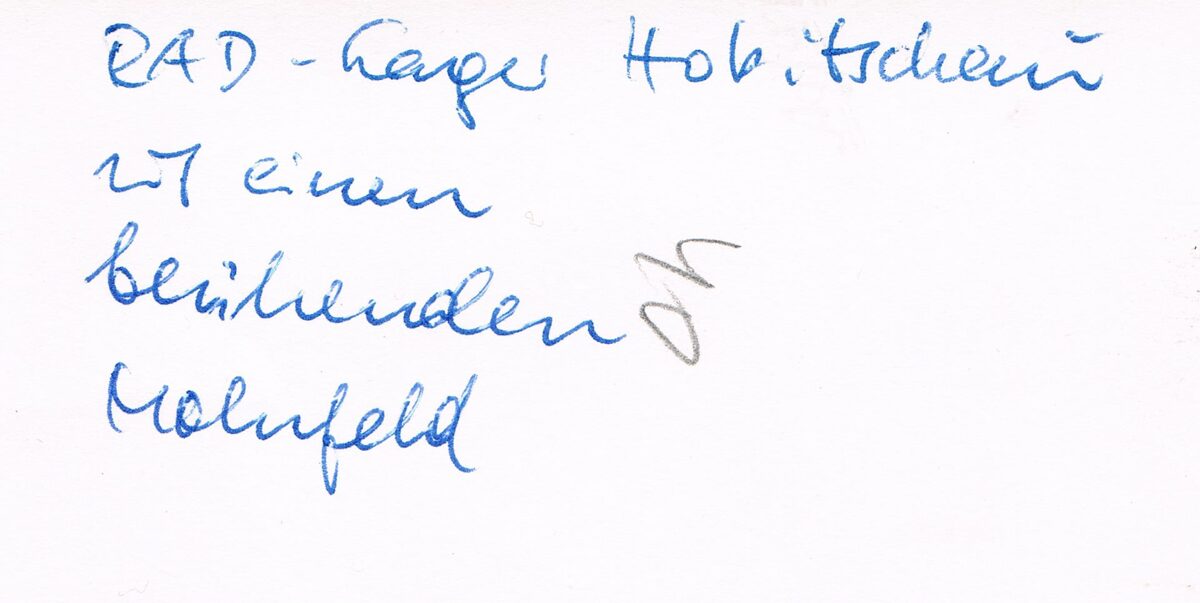 RAD-Lager Hobitschau
mit einem
blühenden
Mohnfeld